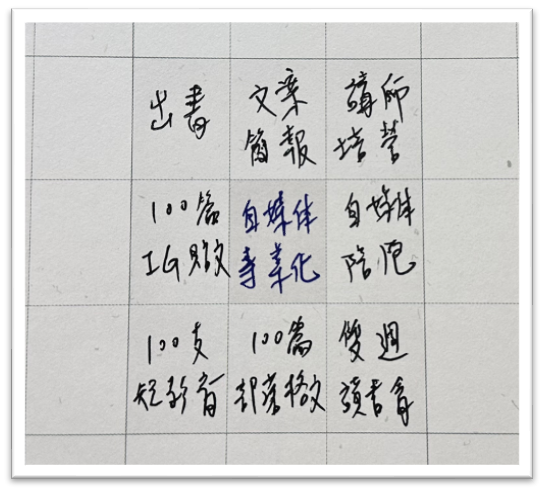 出書
文案
簡報
講師
培營
100篇
IG貼文
自媒体
專業化
自媒体
陪跑
100支
短影音
100篇
部落格文
雙週
讀書會